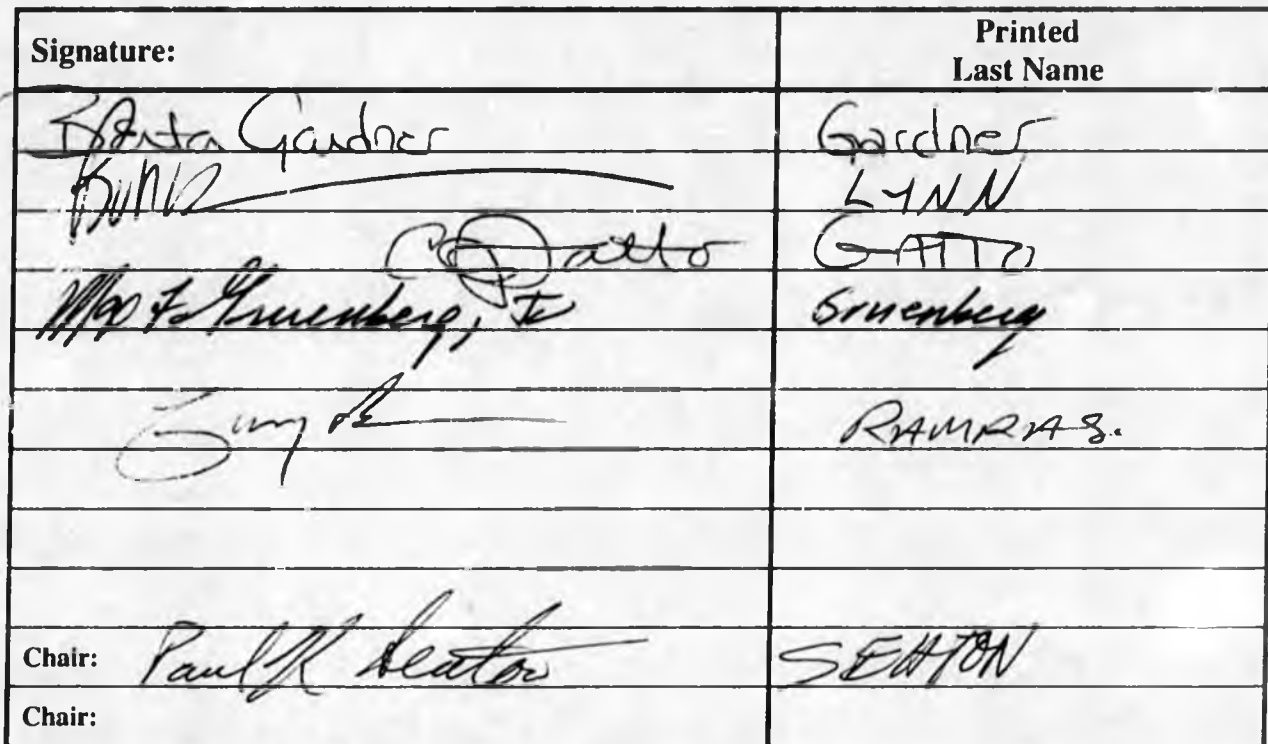 Signature: Printed
Last Name
Berta Gardner Gardner
LYNN
Gatto GATTO
Max F. Gruenberg, Jr Gruenberg
RAMRAS.
Chair: Paul K Seaton SEATON
Chair: